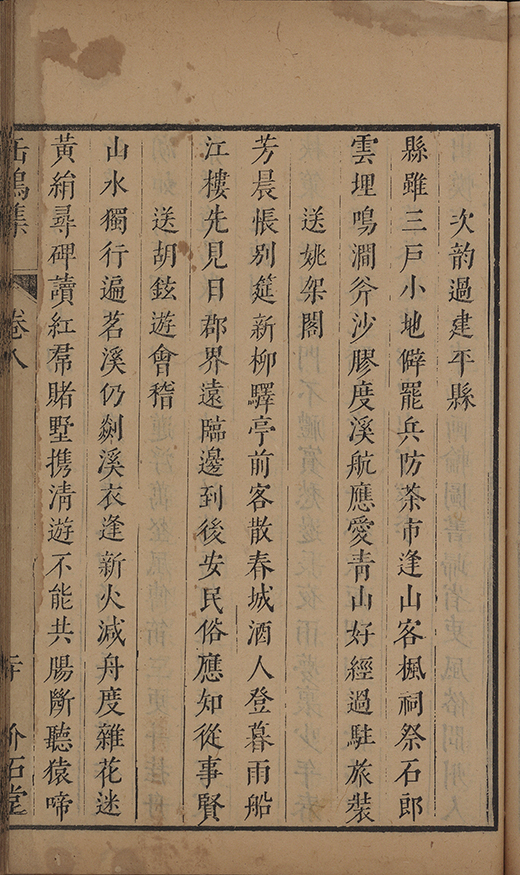 次韵過建平縣
縣雖三戶小地僻罷兵防茶市逢山客楓祠祭石郎
雲埋鳴澗斧沙膠度溪航應愛青山好經過駐旅裝
送姚架閣
芳晨悵別筵新柳驛亭前客散春城酒人登暮雨船
江樓先見日郡界遠臨邊到後安民俗應知從事賢
送胡鉉遊會稽
山水獨行遍苕溪仍剡溪衣逢新火減舟度雜花迷
黃絹尋碑讀紅帬賭墅携清遊不能共腸斷聽猿啼
集 卷八 介石堂